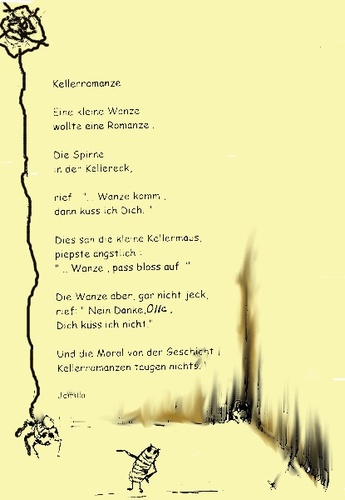 Kellerromanze
Eine kleine Wanze
wollte eine Romanze.
Die Spinne
in der Kellereck,
rief ".. Wanze komm,
dann kuss ich Dich. "
Dies sah die kleine Kellermaus,
piepste ängstlich :
" .. Wanze, pass bloss auf "
Die Wanze aber, gar nicht jeck,
rief: " Nein Danke, Olle,
Dich kuss ich nicht."
Und die Moral von der Geschicht
Kellerromanzen taugen nichts.